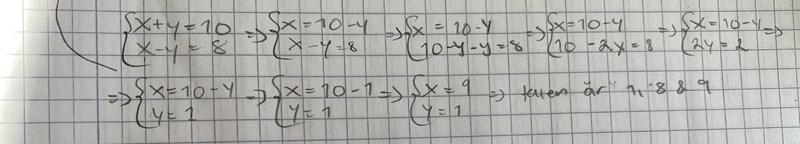 {x+y=10 x-y=8 => {x=10-y x-y=8 => {x=10-y 10-y-y=8 => {x=10-y 10-2y=8 => {x=10-y 2y=2 =>
=> {x=10-y y=1 => {x=10-1 y=1 => {x=9 y=1 => talen är 8 & 9